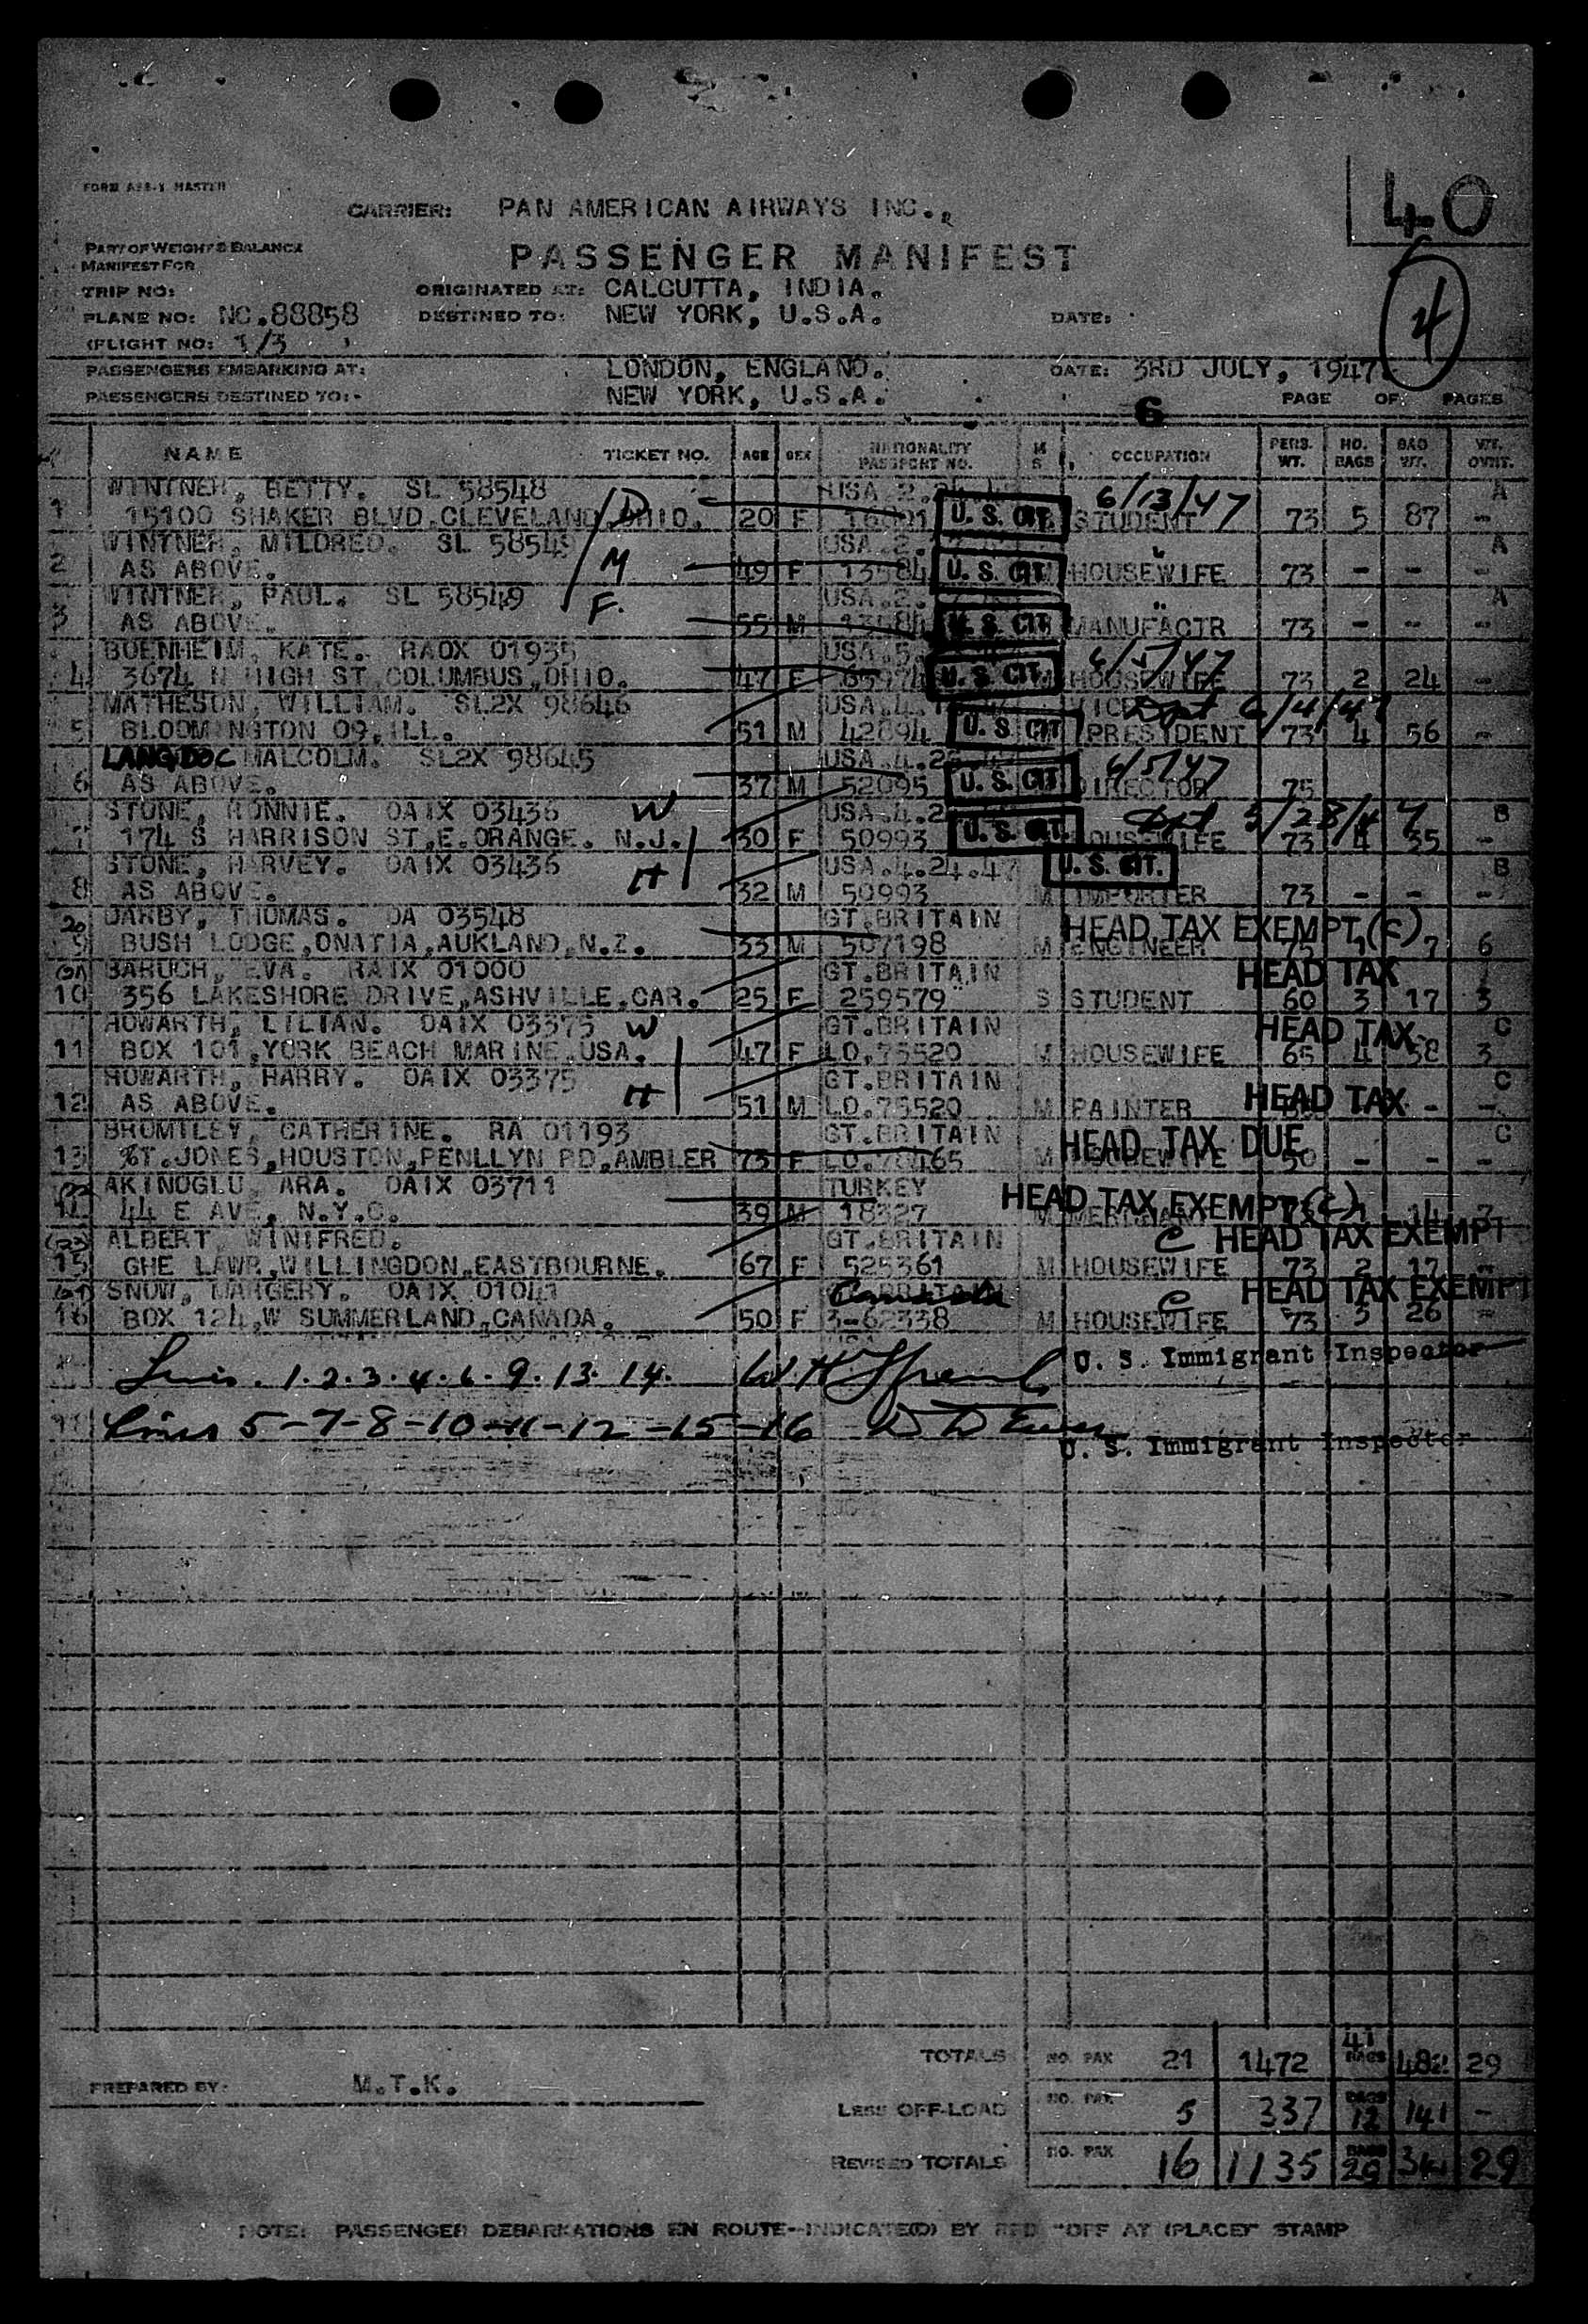 FORM MASTER
CARRIER: PAN AMERICAN AIRWAYS INC.,
40
PART OF WEIGHT & BALANCE
MANIFEST FOR
PASSENGER MANIFEST
TRIP NO: ORIGINATED AT: CALCUTTA, INDIA.
PLANE NO: NC.88858 DESTINED TO: NEW YORK, U.S.A. DATE:
(FLIGHT NO: 1/3 )
4
PASSENGERS EMBARKING AT: LONDON, ENGLAND. DATE: 3RD JULY, 1947.
PASSENGERS DESTINED TO:- NEW YORK, U.S.A. 6 PAGE OF PAGES
NAME TICKET NO. AGE SEX NATIONALITY PASSPORT NO. M S OCCUPATION PERS. WT. NO. BAGS BAG WT. WT. OVHT.
WINTNER, BETTY. SL 58548 USA 6/13/47 A
1 15100 SHAKER BLVD.CLEVELAND,OHIO. D 20 F U. S. CIT. STUDENT 73 5 87 -
WINTNER, MILDRED. SL 58549 USA A
2 AS ABOVE. M 49 F 13584 U. S. CIT. HOUSEWIFE 73 - - -
WINTNER, PAUL. SL 58549 USA A
3 AS ABOVE. F. 55 M 13584 U. S. CIT. MANUFACTR 73 - - -
BUENHEIM, KATE. RAOX 01935 USA 6/5/47
4 3674 N HIGH ST,COLUMBUS,OHIO. 47 F U. S. CIT. HOUSEWIFE 73 2 24 -
MATHESON, WILLIAM. SL2X 98646 USA VICE Dpt 6/4/47
5 BLOOMINGTON 09,ILL. 51 M 42894 U. S. CIT. PRESIDENT 73 4 56 -
LANGDOC MALCOLM. SL2X 98645 USA 6/5/47
6 AS ABOVE. 37 M 52095 U. S. CIT. DIRECTOR 75
STONE, RONNIE. OAIX 03436 W USA Dpt 3/28/47 B
7 174 S HARRISON ST,E.ORANGE. N.J. 30 F 50993 U. S. CIT. HOUSEWIFE 73 4 35 -
STONE, HARVEY. OAIX 03436 USA.4.24.47 U. S. CIT. B
8 AS ABOVE. H 32 M 50993 M IMPORTER 73 - - -
20 DARBY, THOMAS. OA 03548 GT.BRITAIN HEAD TAX EXEMPT (C)
9 BUSH LODGE,ONATIA,AUKLAND,N.Z. 33 M 507198 M ENGINEER 75 1 7 6
BARUCH, EVA. RAIX 01000 GT.BRITAIN HEAD TAX
10 356 LAKESHORE DRIVE,ASHVILLE.CAR. 25 F 259579 S STUDENT 60 3 17 3
HOWARTH, LILIAN. OAIX 03375 W GT.BRITAIN HEAD TAX C
11 BOX 101,YORK BEACH MARINE.USA. 47 F LO.75520 M HOUSEWIFE 65 4 58 3
HOWARTH, HARRY. OAIX 03375 GT.BRITAIN C
12 AS ABOVE. H 51 M LO.75520 M PAINTER HEAD TAX - -
BRUMILEY, CATHERINE. RA 01193 GT.BRITAIN HEAD TAX DUE C
13 ST.JONES,HOUSTON,PENLLYN RD,AMBLER 73 F M HOUSEWIFE 50 - - -
AKINOGLU, ARA. OAIX 03711 TURKEY HEAD TAX EXEMPT (C)
14 44 E AVE, N.Y.C. 39 M 18327 M MERCHANT
ALBERT, WINIFRED. GT.BRITAIN C HEAD TAX EXEMPT
15 GHE LAWR,WILLINGDON,EASTBOURNE. 67 F 525361 M HOUSEWIFE 73 2 17 -
SNOW, MARGERY. OAIX 01041 C HEAD TAX EXEMPT
16 BOX 124,W SUMMERLAND,CANADA. 50 F 3-62338 M HOUSEWIFE 73 3 26 -
Lines. 1.2.3.4.6.9.13.14. U. S. Immigrant Inspector
Lines 5-7-8-10-11-12-15-16 U. S. Immigrant Inspector
TOTALS NO. PAX 21 1472 41 BAGS 482 29
PREPARED BY: M.T.K.
LESS OFF-LOAD NO. PAX 5 337 BAGS 12 141 -
REVISED TOTALS NO. PAX 16 1135 BAGS 29 341 29
NOTE: PASSENGER DEBARKATIONS EN ROUTE-INDICATE(D) BY RED "OFF AT (PLACE)" STAMP